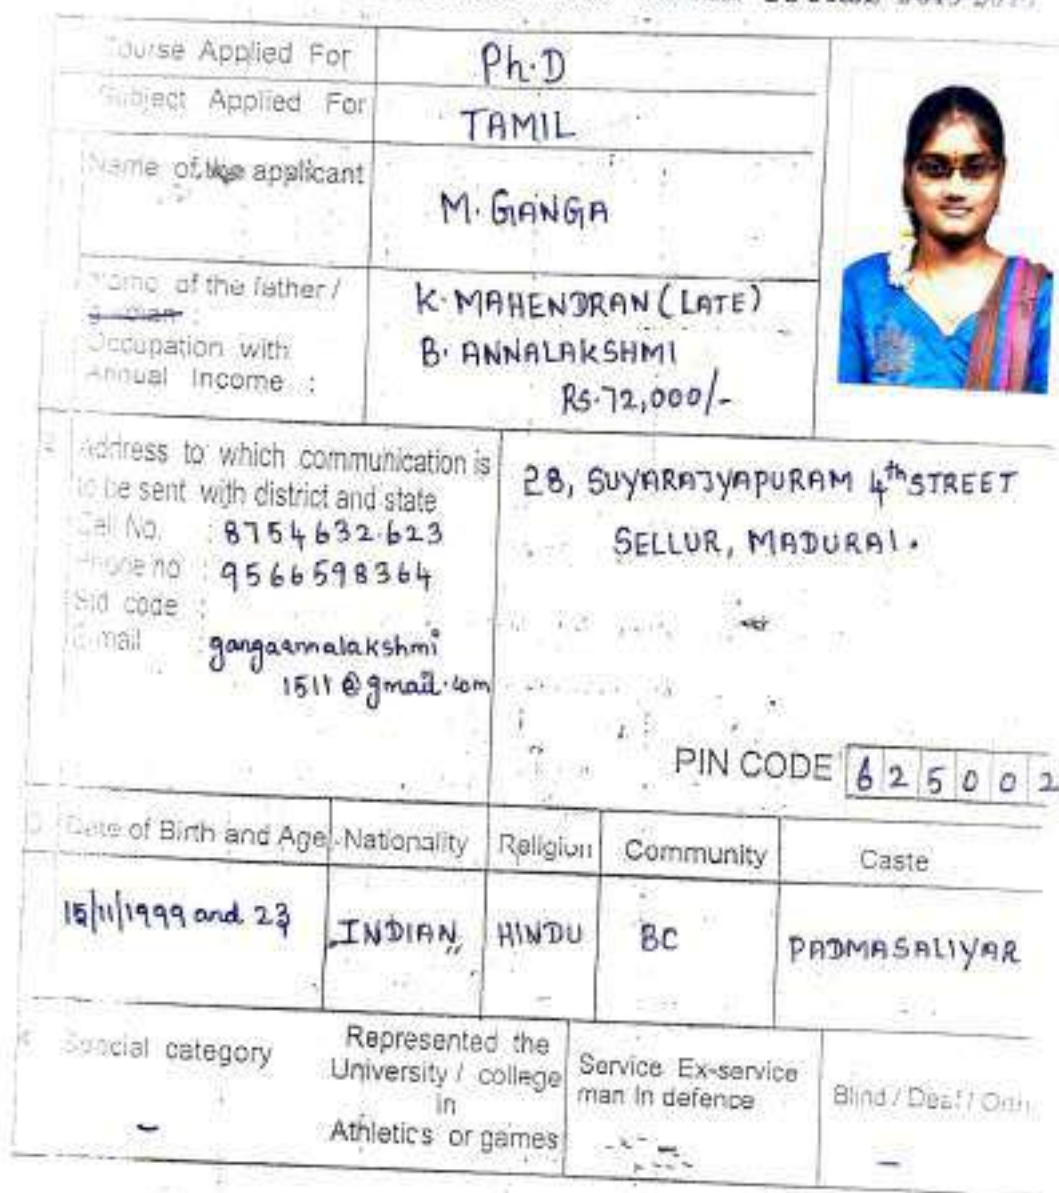 Course Applied For
Ph.D
Subject Applied For
TAMIL
Name of the applicant
M. GANGA
Name of the father /
K. MAHENDRAN (LATE)
Occupation with
B. ANNALAKSHMI
Annual Income :
Rs. 72,000/-
Address to which communication is
to be sent with district and state
Cell No. : 8754632623
Phone no : 9566598364
Std code :
E-mail : gangaannalakshmi
1511@gmail.com
28, SUYARAJYAPURAM 4th STREET
SELLUR, MADURAI.
PIN CODE 625002
Date of Birth and Age Nationality Religion Community Caste
15/11/1999 and 23 INDIAN HINDU BC PADMASALIYAR
Special category
-
Represented the
University / college
in
Athletics or games
Service Ex-service
man In defence
Blind / Deaf /
-